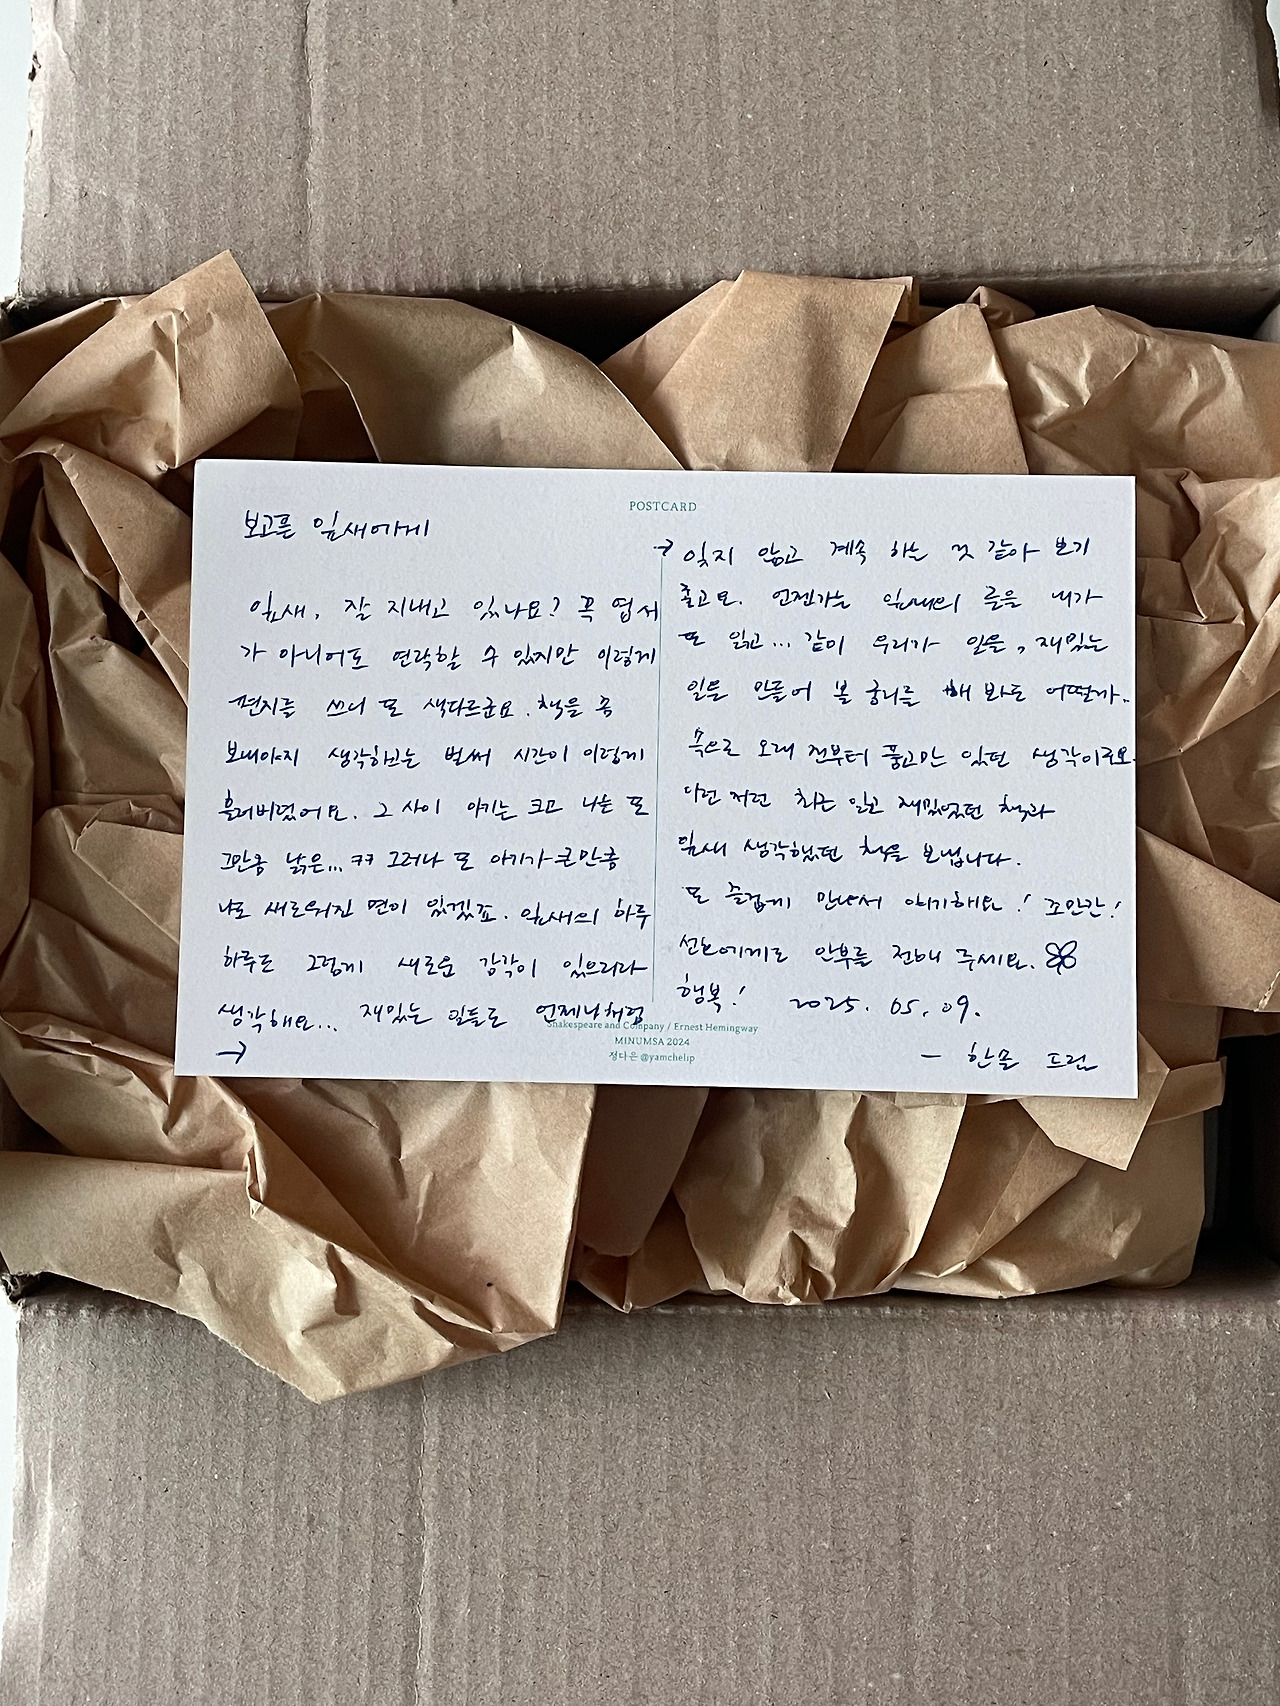 POSTCARD
보고픈 잎새에게
잎새, 잘 지내고 있나요? 꼭 엽서
가 아니어도 연락할 수 있지만 이렇게
편지를 쓰니 또 색다르군요. 책을 좀
보내야지 생각하고는 벌써 시간이 이렇게
흘러버렸어요. 그 사이 아기는 크고 나는 또
그만큼 늙은... ㅋㅋ 그러나 또 아기가 큰만큼
나도 새로워진 면이 있겠죠. 잎새의 하루
하루도 그렇게 새로운 감각이 있으리라
생각해요... 재밌는 일들도 언제나처럼
→
→ 잊지 않고 계속 하는 것 같아 보기
좋고요. 언젠가는 잎새의 글을 내가
또 읽고... 같이 우리가 일을, 재밌는
일을 만들어 볼 궁리를 해 봐도 어떨까..
속으로 오래 전부터 품고만 있던 생각이로요.
이런 저런 최근 읽고 재밌었던 책과
잎새 생각했던 책을 보냅니다.
또 즐겁게 만나서 얘기해요! 조만간!
에게도 안부를 전해 주세요.
행복! 2025. 05. 09.
— 한솔 드림
Shakespeare and Company / Ernest Hemingway
MINUMSA 2024
정다은 @yamchelip